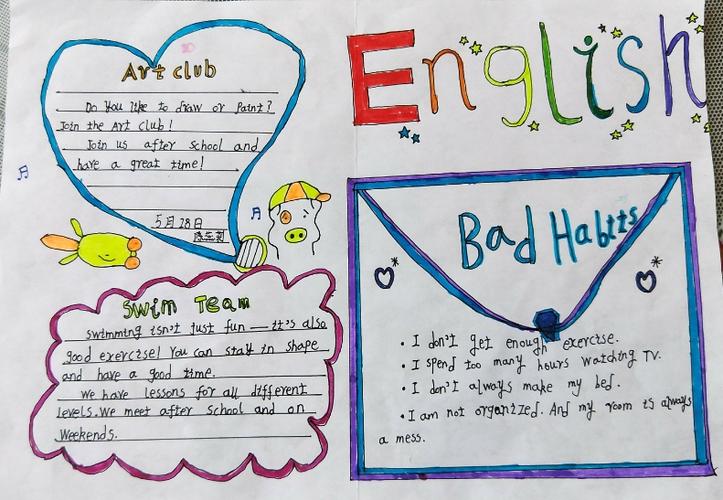 Art club
Do you like to draw or Paint?
Join the Art club!
Join us after school and
have a great time!
5月28日
English
Bad Habits
• I don't get enough exercise.
• I spend too many hours watching TV.
• I don't always make my bed.
• I am not organized. And my room is always
a mess.
Swim Team
Swimming isn't just fun — it's also
good exercise! You can stay in shape
and have a good time.
We have lessons for all different
levels. We meet after school and on
Weekends.